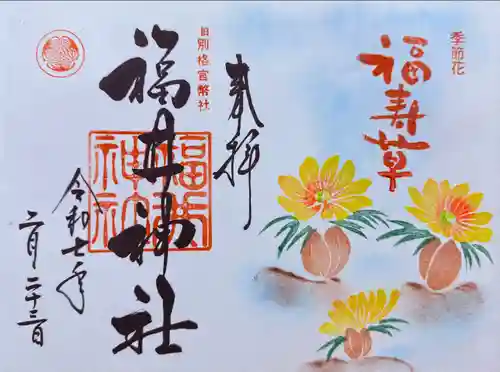 季節花
福寿草
奉拝
旧別格官幣社
福井神社
福井
神社
令和七年
二月二十三日